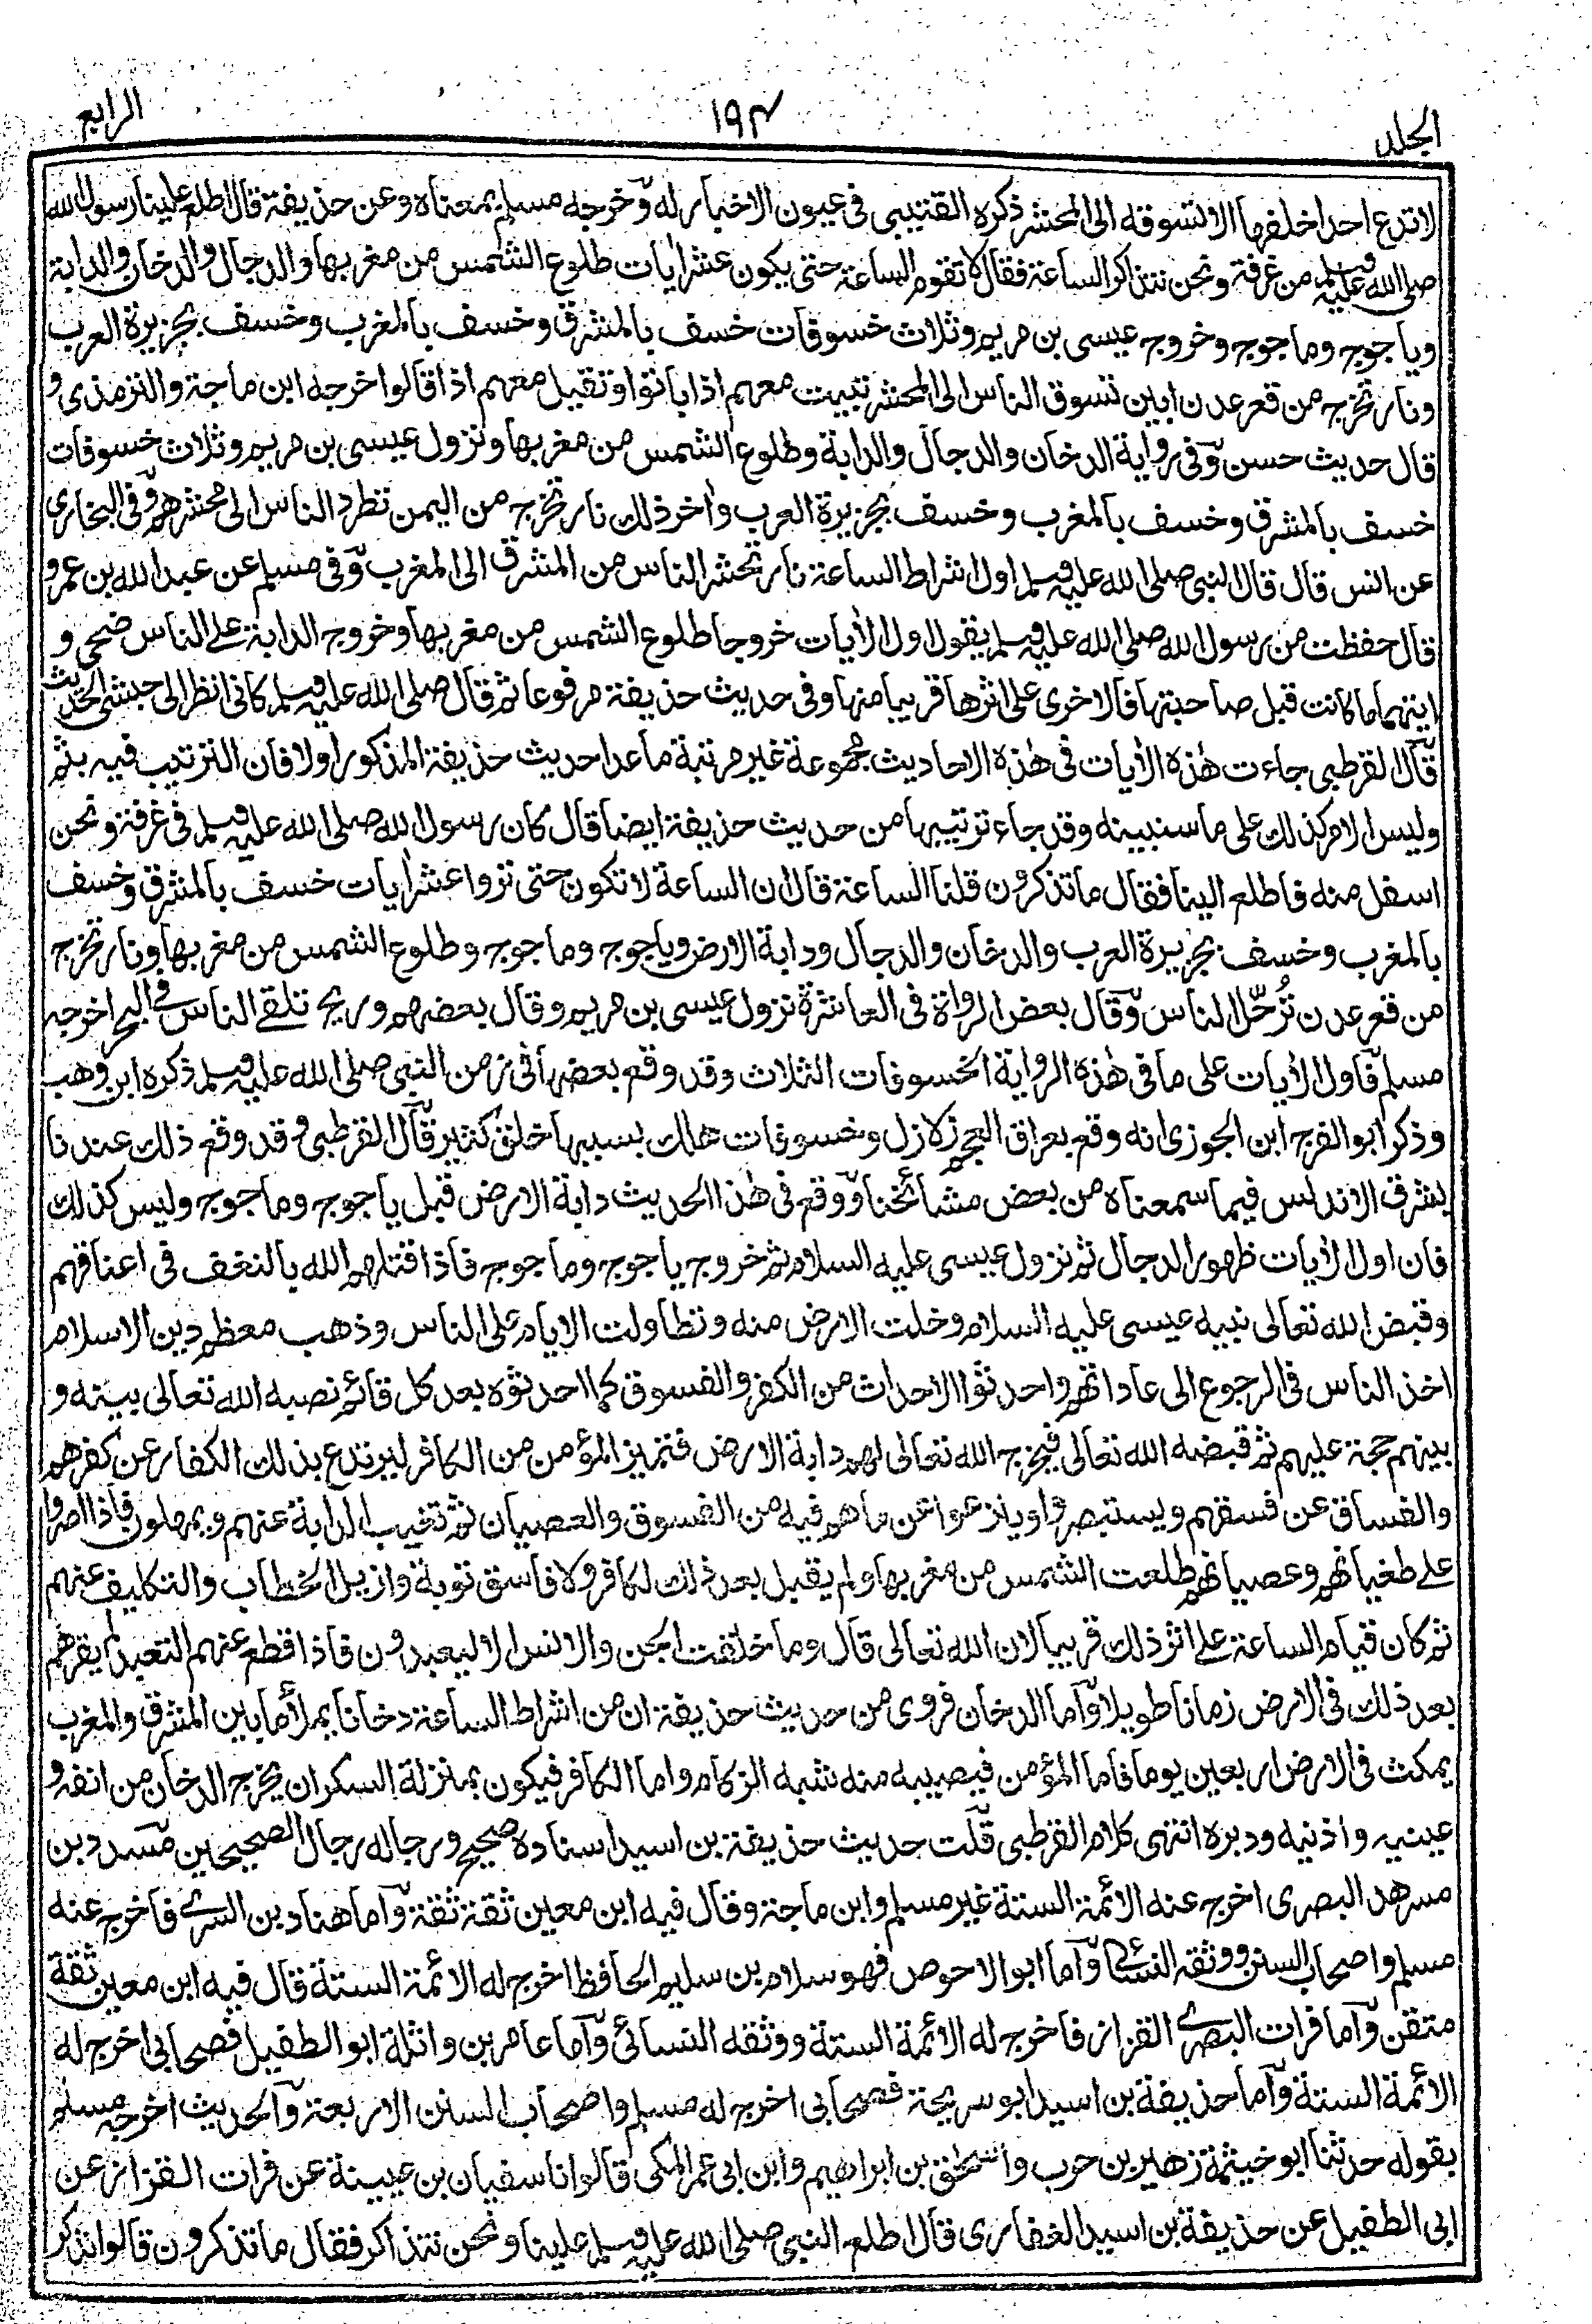 الجلد ١٩٤ الرابع
لا تدع احدا خلفها الا تسوقه الى المحشر ذكره القتيبى فى عيون الاخبار له وخرجه مسلم بمعناه وعن حذيفة قال اطلع علينا رسول الله
صلى الله عليه وسلم من غرفة ونحن نتذاكر الساعة فقال لا تقوم الساعة حتى يكون عشر ايات طلوع الشمس من مغربها والدجال والدخان والدابة
وياجوج وماجوج وخروج عيسى بن مريم وثلاث خسوفات خسف بالمشرق وخسف بالمغرب وخسف بجزيرة العرب
ونار تخرج من قعر عدن ابين تسوق الناس الى المحشر تبيت معهم اذا باتوا وتقيل معهم اذا قالوا اخرجه ابن ماجة والترمذى و
قال حديث حسن وفى رواية الدخان والدجال والدابة وطلوع الشمس من مغربها ونزول عيسى بن مريم وثلاث خسوفات
خسف بالمشرق وخسف بالمغرب وخسف بجزيرة العرب واخر ذلك نار تخرج من اليمن تطرد الناس الى محشرهم وفى البخارى
عن انس قال قال النبى صلى الله عليه وسلم اول اشراط الساعة نار تحشر الناس من المشرق الى المغرب وفى مسلم عن عبد الله بن عمرو
قال حفظت من رسول الله صلى الله عليه وسلم يقول اول الأيات خروجا طلوع الشمس من مغربها وخروج الدابة على الناس ضحى و
ايتهما ما كانت قبل صاحبتها فالاخرى على اثرها قريبا منها وفى حديث حذيفة مرفوعا ثم قال صلى الله عليه وسلم كانى انظر الى حبشى الحديث
قال القرطبى جاءت هذه الأيات فى هذه الاحاديث مجموعة غير مرتبة ما عدا حديث حذيفة المذكور اولا فان الترتيب فيه بثم
وليس الامر كذلك على ما سنبينه وقد جاء ترتيبها من حديث حذيفة ايضا قال كان رسول الله صلى الله عليه وسلم فى غرفة ونحن
اسفل منه فاطلع الينا فقال ما تذكرون قلنا الساعة قال ان الساعة لا تكون حتى تروا عشر ايات خسف بالمشرق وخسف
بالمغرب وخسف بجزيرة العرب والدخان والدجال ودابة الارض وياجوج وماجوج وطلوع الشمس من مغربها ونار تخرج
من قعر عدن تُرَحّل الناس وقال بعض الرواة فى العاشرة نزول عيسى بن مريم وقال بعضهم وريح تلقى الناس فى البحر اخرجه
مسلم فاول الأيات على ما فى هذه الرواية الخسوفات الثلاث وقد وقع بعضها فى زمن النبى صلى الله عليه وسلم ذكره ابن وهب
وذكر ابو الفرج ابن الجوزى انه وقع بعراق العجم زلازل وخسوفات هلك بسببها خلق كثير قال القرطبى وقد وقع ذلك عندنا
بشرق الاندلس فيما سمعناه من بعض مشائخنا ووقع فى هذا الحديث دابة الارض قبل ياجوج وماجوج وليس كذلك
فان اول الأيات ظهور الدجال ثم نزول عيسى عليه السلام ثم خروج ياجوج وماجوج فاذا قتلهم الله بالنغف فى اعناقهم
وقبض الله تعالى نبيه عيسى عليه السلام وخلت الارض منه وتطاولت الايام على الناس وذهب معظم دين الاسلام
اخذ الناس فى الرجوع الى عاداتهم واحدثوا الاحداث من الكفر والفسوق كما احدثوه بعد كل قائم نصبه الله تعالى بينه و
بينهم حجة عليهم ثم قبضه الله تعالى فيخرج الله تعالى لهم دابة الارض فتميز المؤمن من الكافر ليرتدع بذلك الكفار عن كفرهم
والفساق عن فسقهم ويستبصروا وينزعوا عن ما هم فيه من الفسوق والعصيان ثم تغيب الدابة عنهم ويمهلون فاذا اصروا
على طغيانهم وعصيانهم طلعت الشمس من مغربها ولم يقبل بعد ذلك لكافر ولا فاسق توبة وازيل الخطاب والتكليف عنهم
ثم كان قيام الساعة على اثر ذلك قريبا لان الله تعالى قال وما خلقت الجن والانس الا ليعبدون فاذا قطع عنهم التعبد لم يقرهم
بعد ذلك فى الارض زمانا طويلا واما الدخان فروى من حديث حذيفة ان من اشراط الساعة دخانا يملأ ما بين المشرق والمغرب
يمكث فى الارض اربعين يوما فاما المؤمن فيصيبه منه شبه الزكام واما الكافر فيكون بمنزلة السكران يخرج الدخان من انفه و
عينيه واذنيه ودبره انتهى كلام القرطبى قلت حديث حذيفة بن اسيد اسناده صحيح ورجاله رجال الصحيحين مسدد بن
مسرهد البصرى اخرج عنه الائمة الستة غير مسلم وابن ماجة وقال فيه ابن معين ثقة ثقة واما هناد بن السرى فاخرج عنه
مسلم واصحاب السنن ووثقه النسائى واما ابو الاحوص فهو سلام بن سليم الحافظ اخرج له الائمة الستة قال فيه ابن معين ثقة
متقن واما فرات البصرى القزاز فاخرج له الائمة الستة ووثقه النسائى واما عامر بن واثلة ابو الطفيل فصحابى اخرج له
الائمة الستة واما حذيفة بن اسيد ابو سريحة فصحابى اخرج له مسلم واصحاب السنن الاربعة والحديث اخرجه مسلم
بقوله حدثنا ابو خيثمة زهير بن حرب واسحق بن ابراهيم وابن ابى عمر المكى قالوا نا سفيان بن عيينة عن فرات القزاز عن
ابى الطفيل عن حذيفة بن اسيد الغفارى قال اطلع النبى صلى الله عليه وسلم علينا ونحن نتذاكر فقال ما تذكرون قالوا نذكر